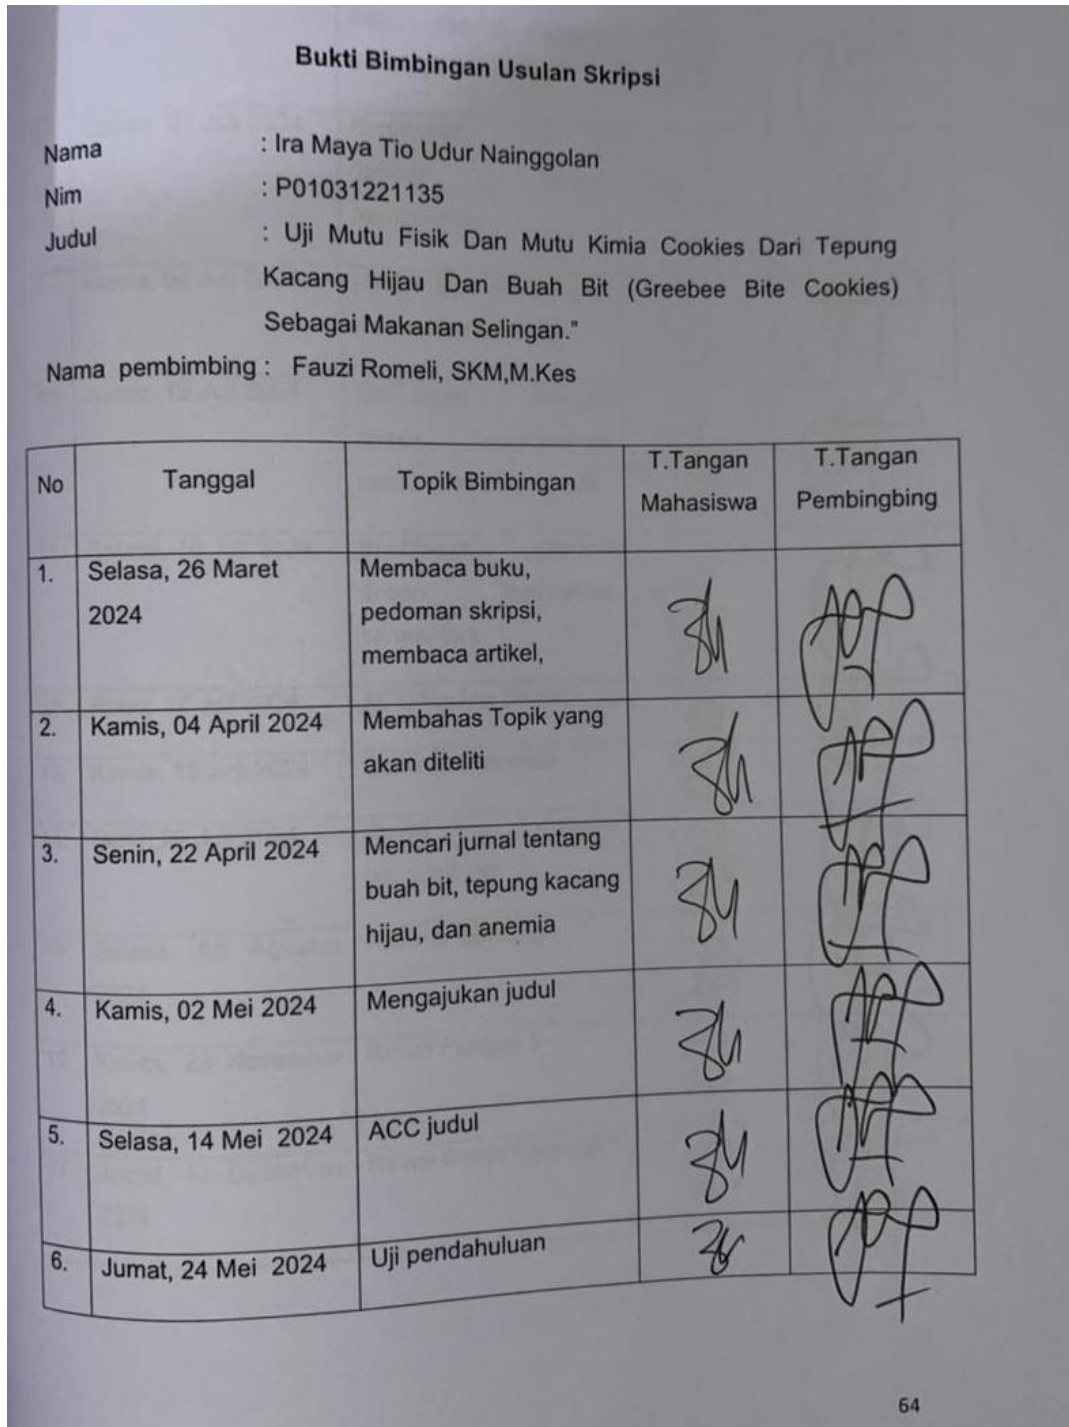 Bukti Bimbingan Usulan Skripsi
Nama : Ira Maya Tio Udur Nainggolan
Nim : P01031221135
Judul : Uji Mutu Fisik Dan Mutu Kimia Cookies Dari Tepung
Kacang Hijau Dan Buah Bit (Greebee Bite Cookies)
Sebagai Makanan Selingan."
Nama pembimbing : Fauzi Romeli, SKM,M.Kes
No Tanggal Topik Bimbingan T.Tangan Mahasiswa T.Tangan Pembingbing
1. Selasa, 26 Maret Membaca buku,
2024 pedoman skripsi,
membaca artikel,
2. Kamis, 04 April 2024 Membahas Topik yang
akan diteliti
3. Senin, 22 April 2024 Mencari jurnal tentang
buah bit, tepung kacang
hijau, dan anemia
4. Kamis, 02 Mei 2024 Mengajukan judul
5. Selasa, 14 Mei 2024 ACC judul
6. Jumat, 24 Mei 2024 Uji pendahuluan
64